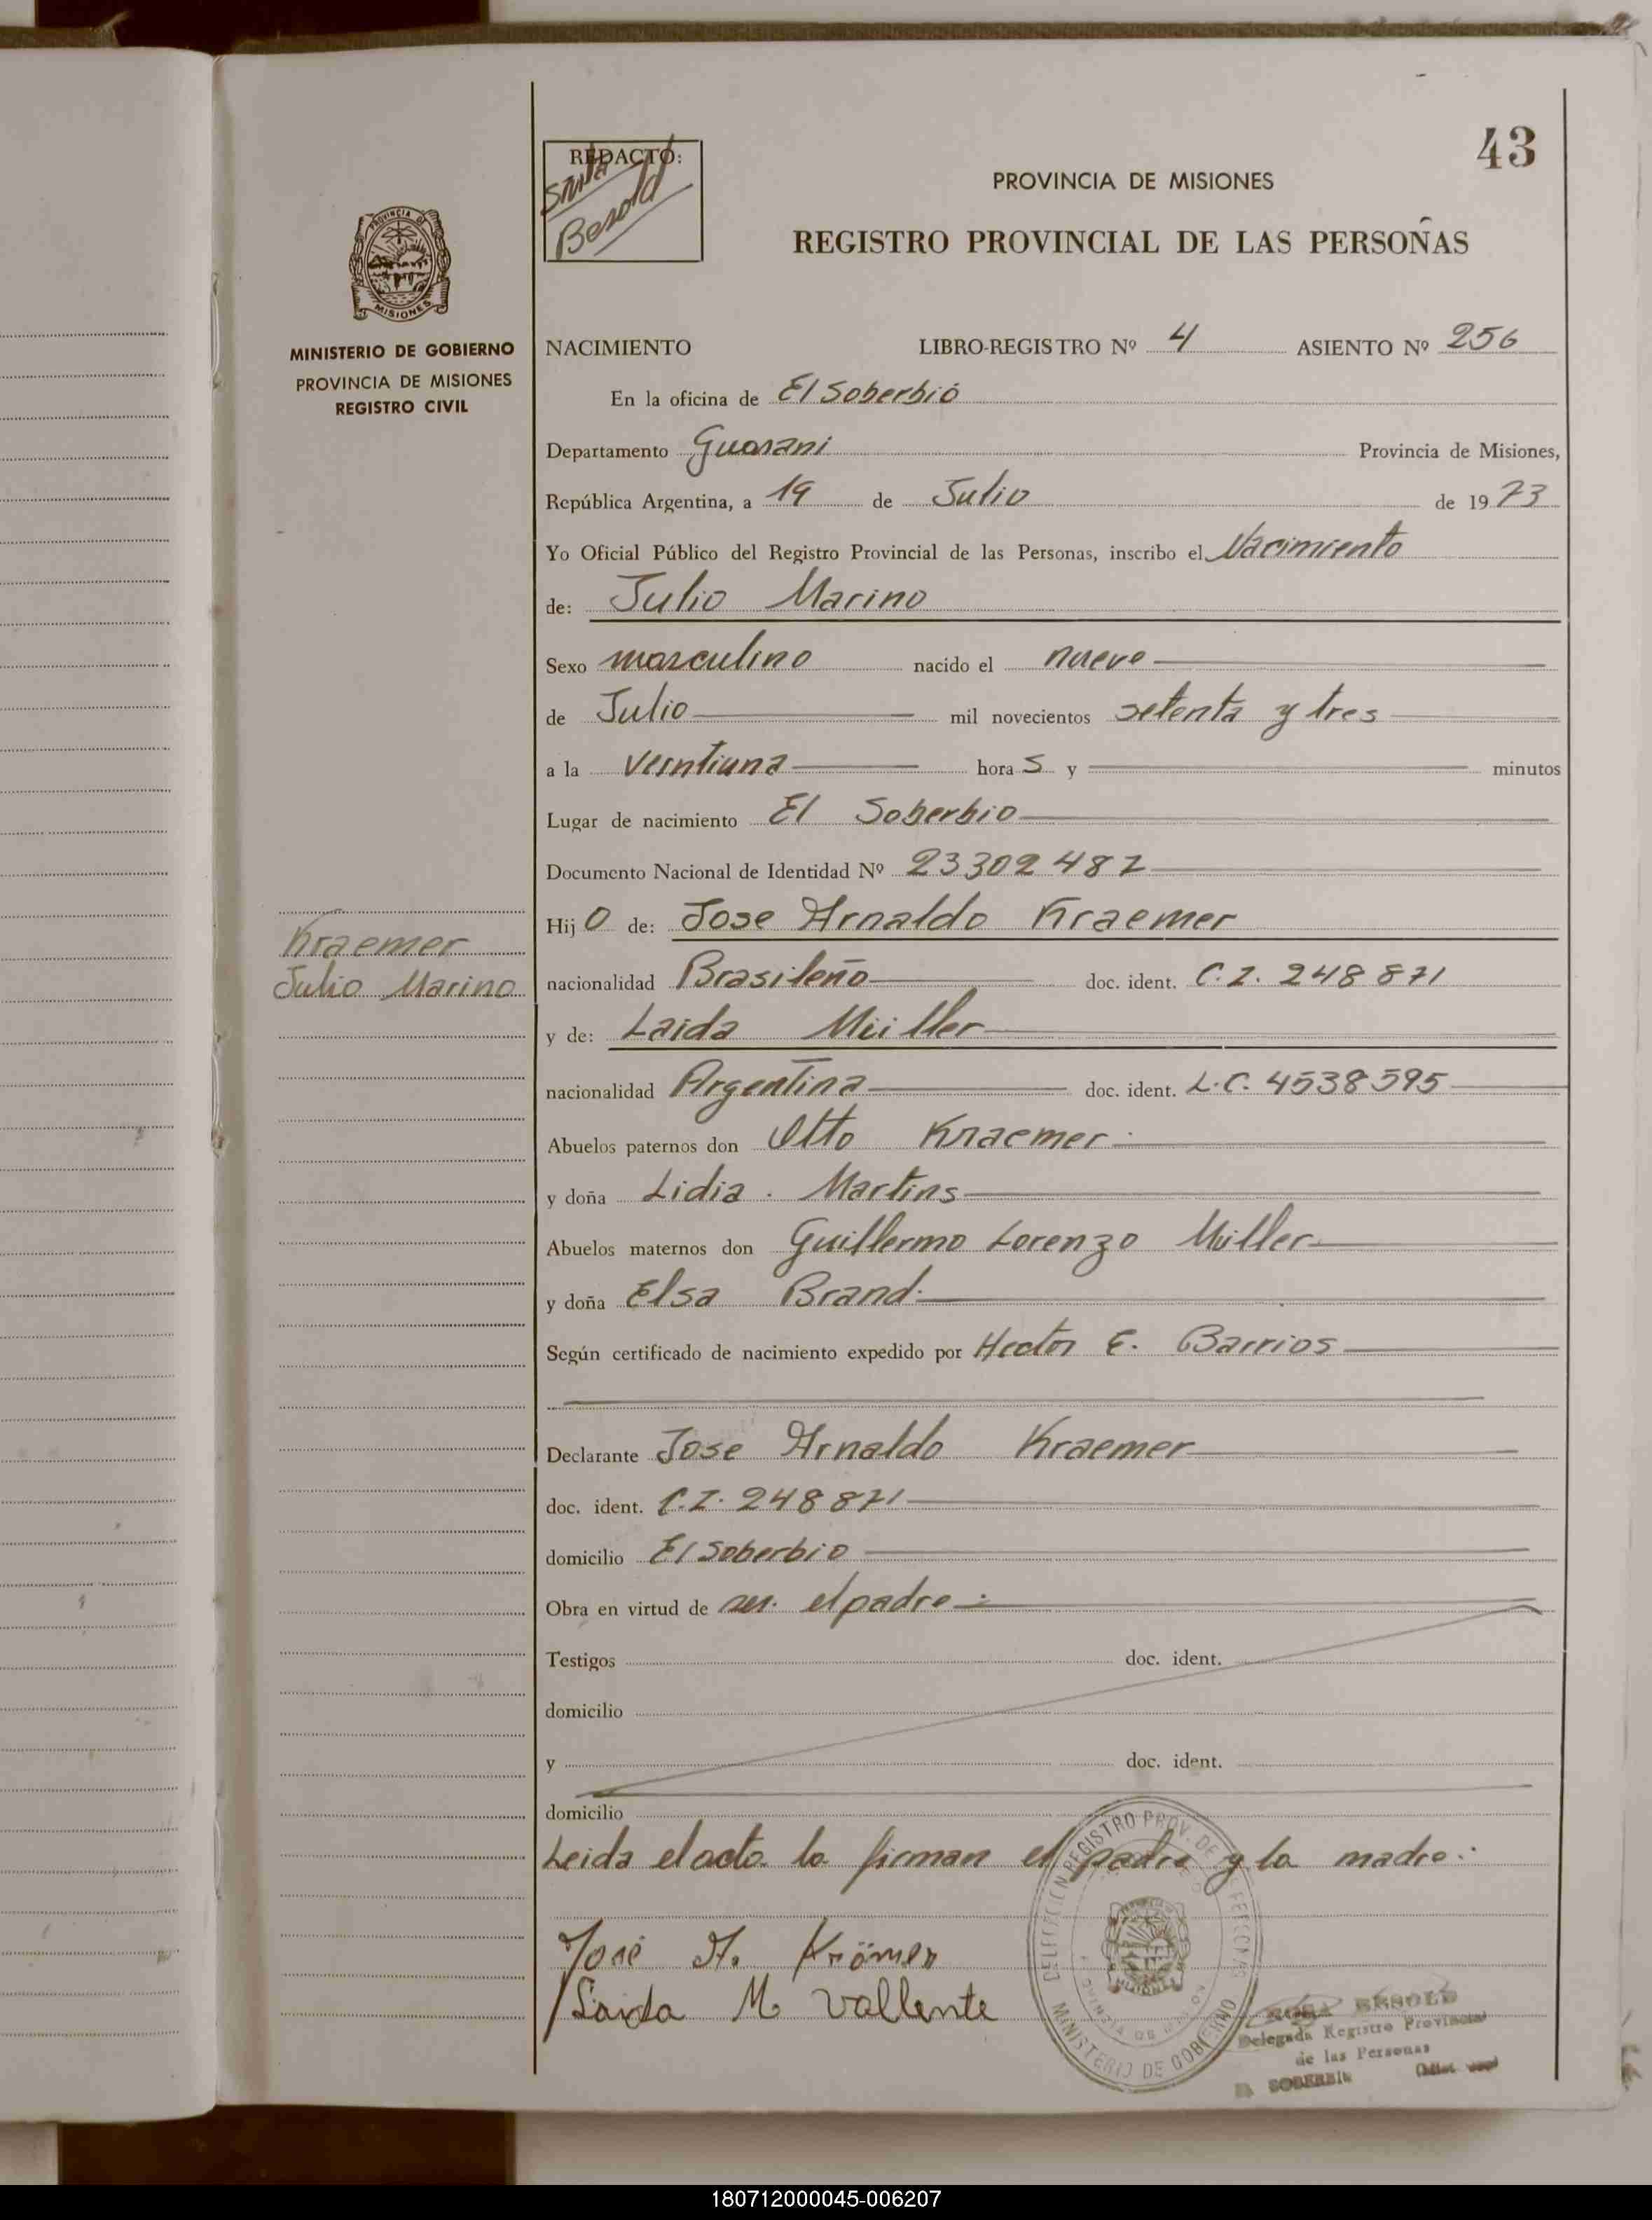 43
REDACTÓ:
Besold
PROVINCIA DE MISIONES
REGISTRO PROVINCIAL DE LAS PERSOÑAS
PROVINCIA DE
MISIONES
MINISTERIO DE GOBIERNO
PROVINCIA DE MISIONES
REGISTRO CIVIL
NACIMIENTO LIBRO-REGISTRO Nº 4 ASIENTO Nº 256
En la oficina de El Soberbió
Departamento Guarani Provincia de Misiones,
República Argentina, a 19 de Julio de 1973
Yo Oficial Público del Registro Provincial de las Personas, inscribo el Nacimiento
de: Julio Marino
Sexo masculino nacido el nueve
de Julio mil novecientos setenta y tres
a la veintiuna hora s y minutos
Lugar de nacimiento El Soberbio
Documento Nacional de Identidad Nº 23302487
Hij o de: Jose Arnaldo Kraemer
Kraemer
Julio Marino
nacionalidad Brasileño doc. ident. C.I. 248871
y de: Laida Müller
nacionalidad Argentina doc. ident. L.C. 4538595
Abuelos paternos don Otto Kraemer
y doña Lidia Martins
Abuelos maternos don Guillermo Lorenzo Müller
y doña Elsa Brand
Según certificado de nacimiento expedido por Hector E. Barrios
Declarante Jose Arnaldo Kraemer
doc. ident. C.I. 248871
domicilio El Soberbio
Obra en virtud de ser el padre
Testigos doc. ident.
domicilio
y doc. ident.
domicilio
Leida el acto lo firman el padre y la madre
José A. Krömer
Laida M Vallente
MINISTERIO DE GOBIERNO
BESOLD
Delegada Registro Provincial
de las Personas
SOBERBIO
180712000045-006207